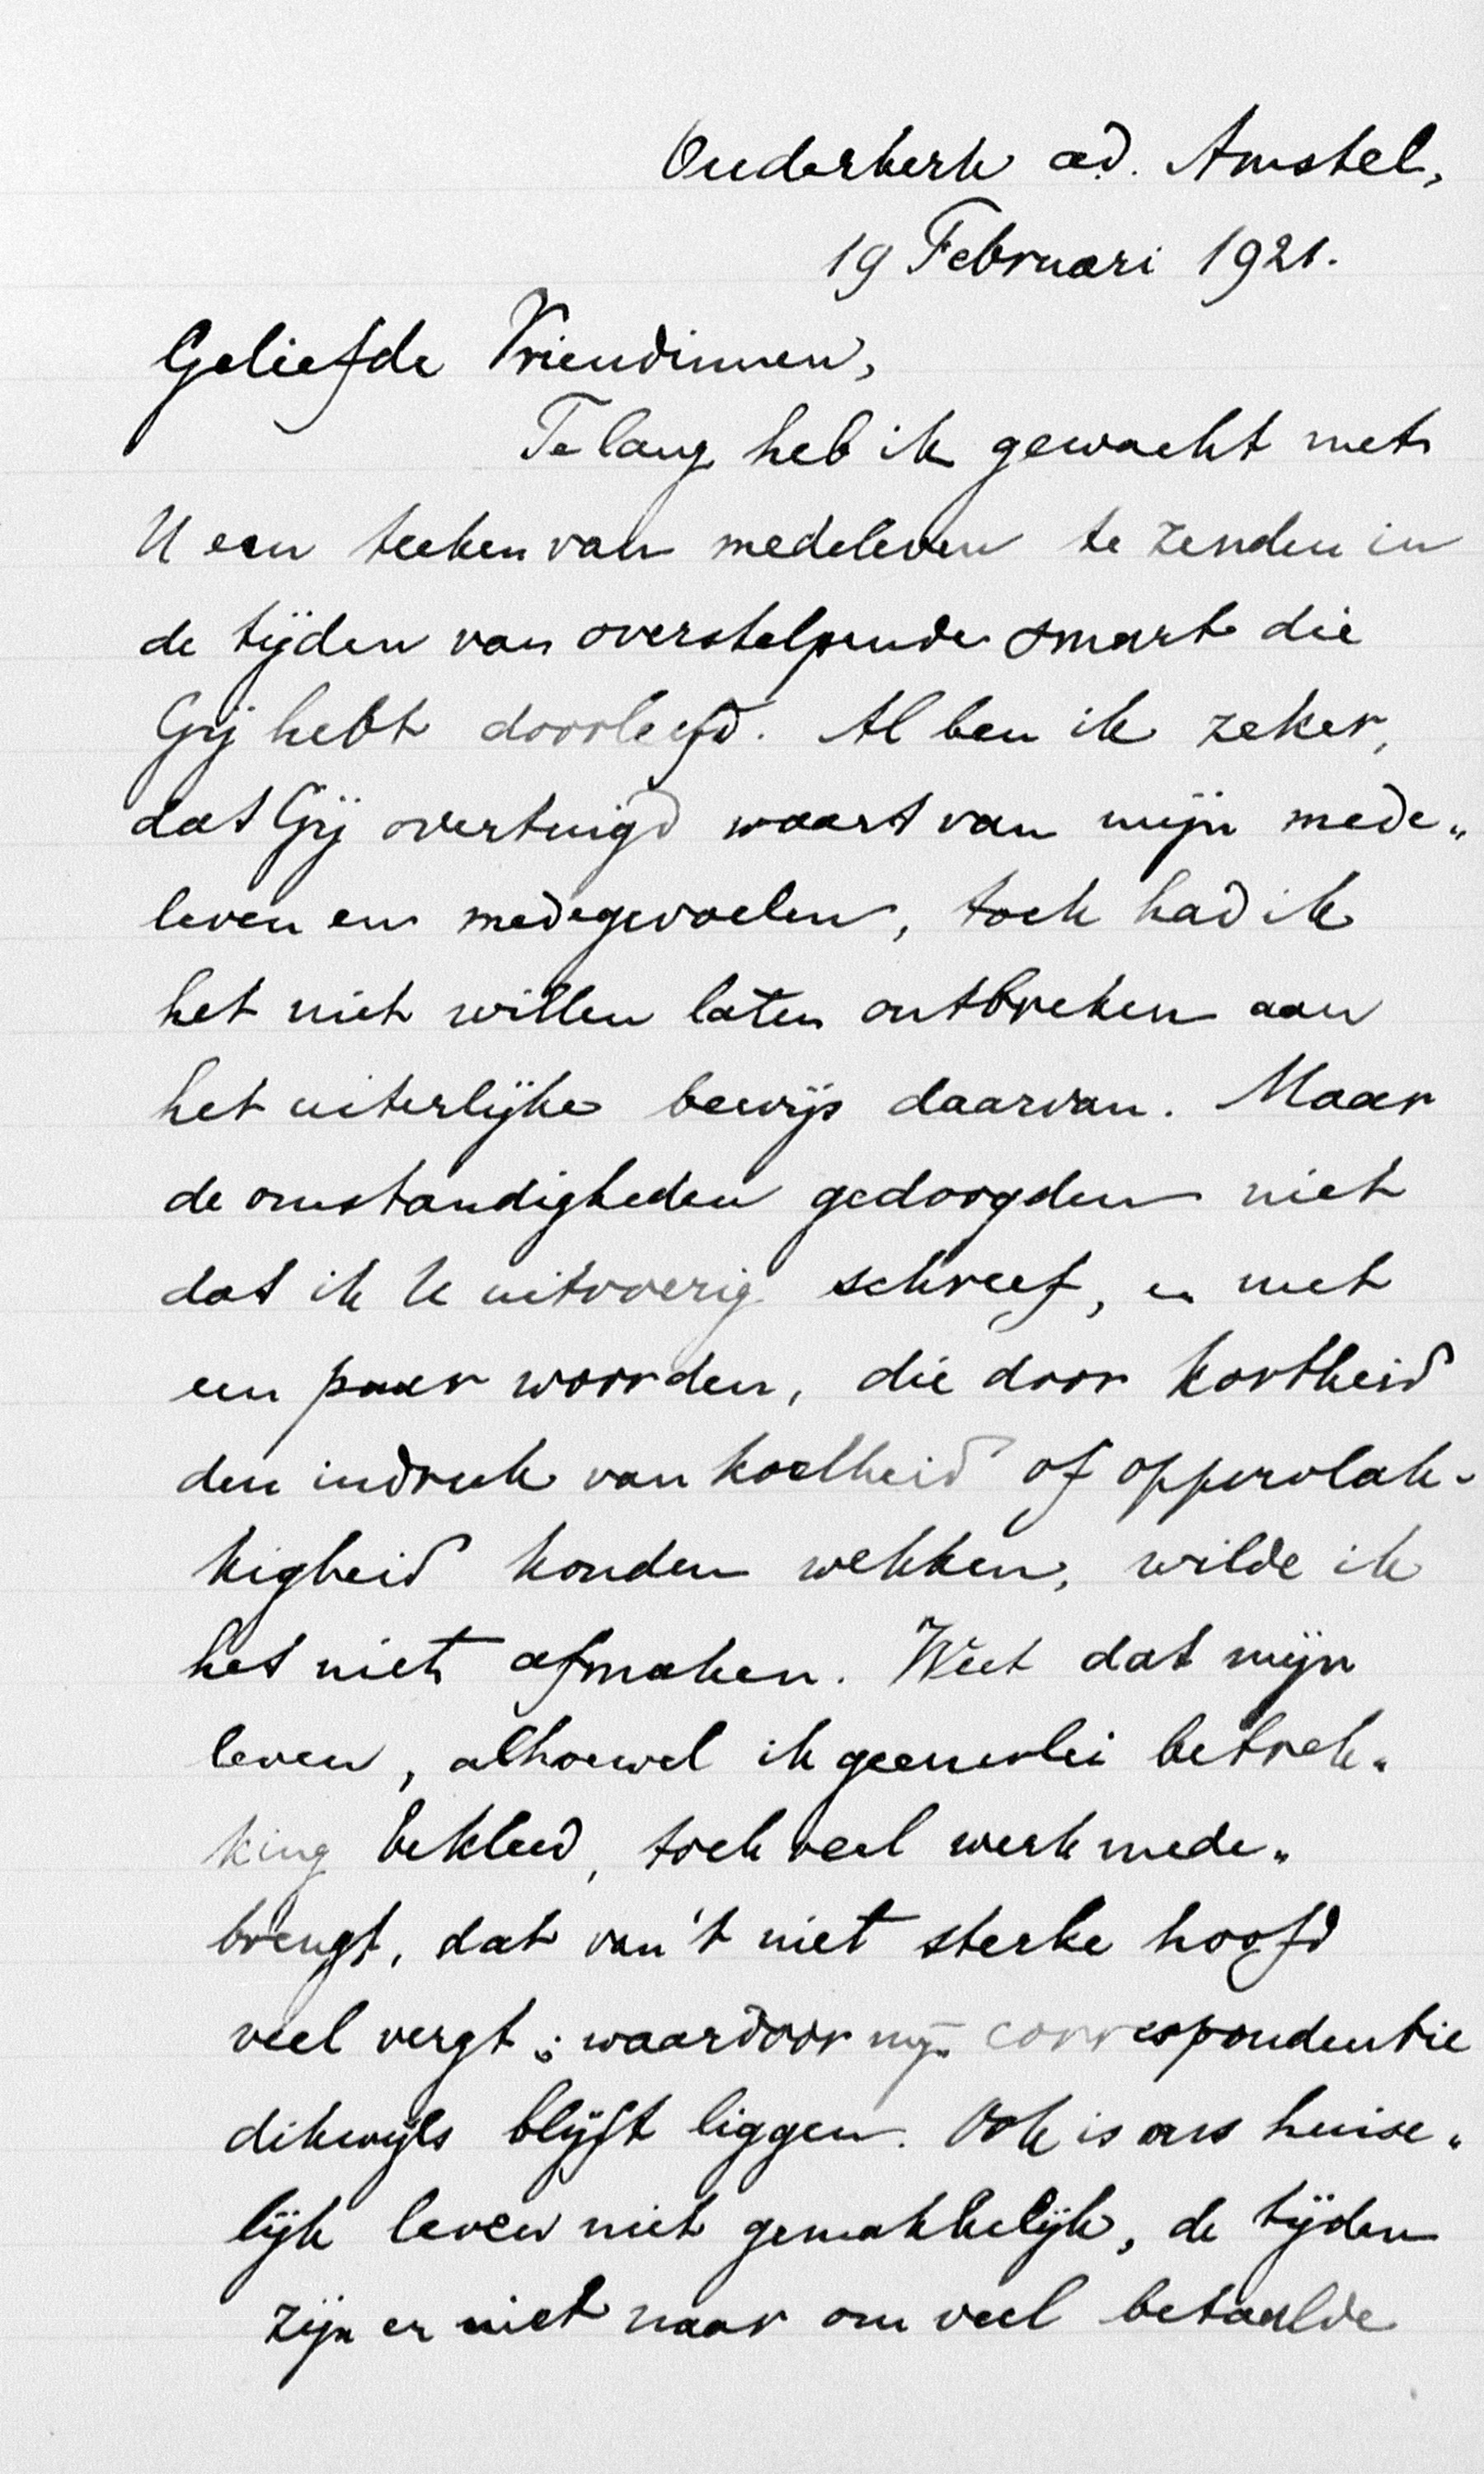 Ouderkerk a.d. Amstel,
19 Februari 1921.
Geliefde Vriendinnen,
Te lang heb ik gewacht met
U een teeken van medeleven te zenden in
de tijden van overstelpende smart die
Gij hebt doorleefd. Al ben ik zeker,
dat Gij overtuigd waart van mijn mede„
leven en medegevoelen, toch had ik
het niet willen laten ontbreken aan
het uiterlijke bewijs daarvan. Maar
de omstandigheden gedoogden niet
dat ik U uitvoerig schreef, en met
een paar woorden, die door kortheid
den indruk van koelheid of oppervlak-
kigheid konden wekken, wilde ik
het niet afmaken. Weet dat mijn
leven, alhoewel ik geenerlei betrek„
king bekleed, toch veel werk mede„
brengt, dat van 't niet sterke hoofd
veel vergt; waardoor mijn correspondentie
dikwijls blijft liggen. Ook is ons huise„
lijk leven niet gemakkelijk, de tijden
zijn er niet naar om veel betaalde